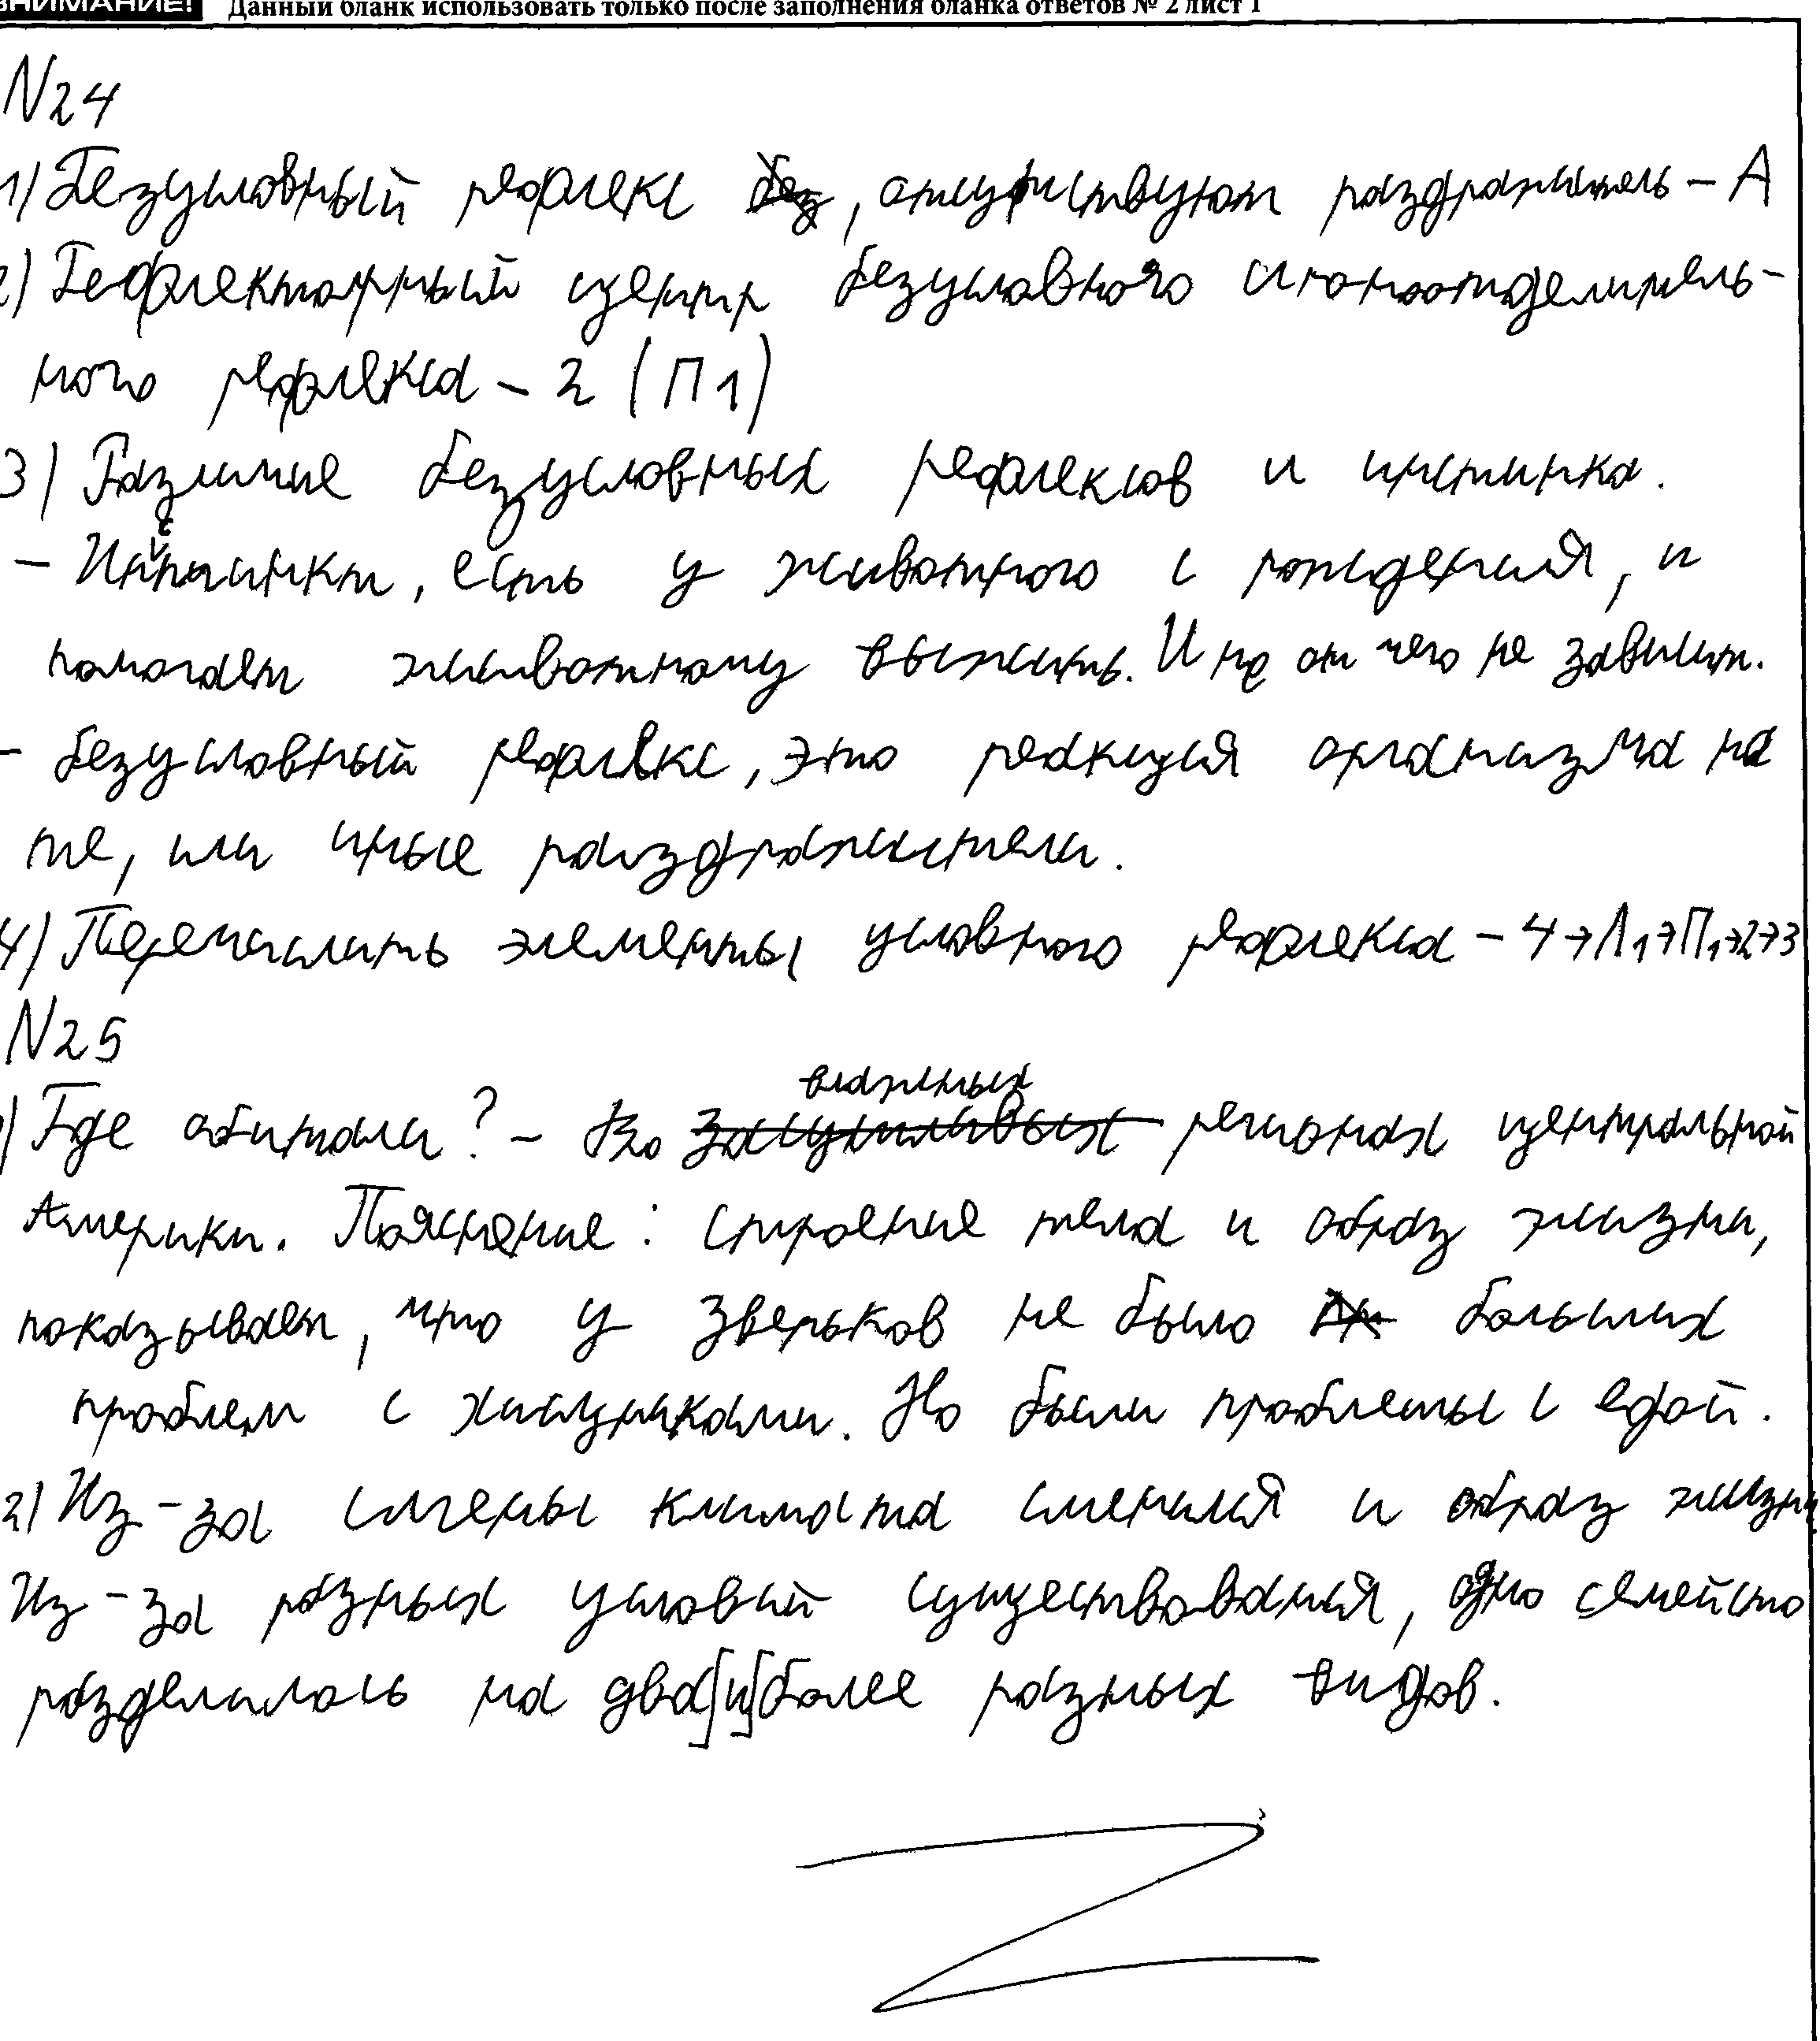 ВНИМАНИЕ! Данный бланк использовать только после заполнения бланка ответов № 2 лист 1
N24
1) Безусловный рефлекс, отсутствуют раздражитель - А
2) Рефлекторный центр безусловного слюноотделитель-
ного рефлекса - 2 (П1)
3) Различие безусловных рефлексов и инстинка.
- Инстинкт, есть у животного с рождения, и
помогает животному выжить. И не от чего не зависит.
- безусловный рефлекс, это реакция организма на
те, или иные раздражители.
4) Перечислить элементы условного рефлекса - 4→Л1→П1→2→3
N25
1) Где обитали? - Во влажных регионах центральной
Америки. Пояснение: строение тела и образ жизни,
показывает, что у зверьков не было больших
проблем с хищниками. Но были проблемы с едой.
2) Из-за смены климата сменился и образ жизни
Из-за разных условий существования, одно семейсто
разделилось на два[и]более разных видов.